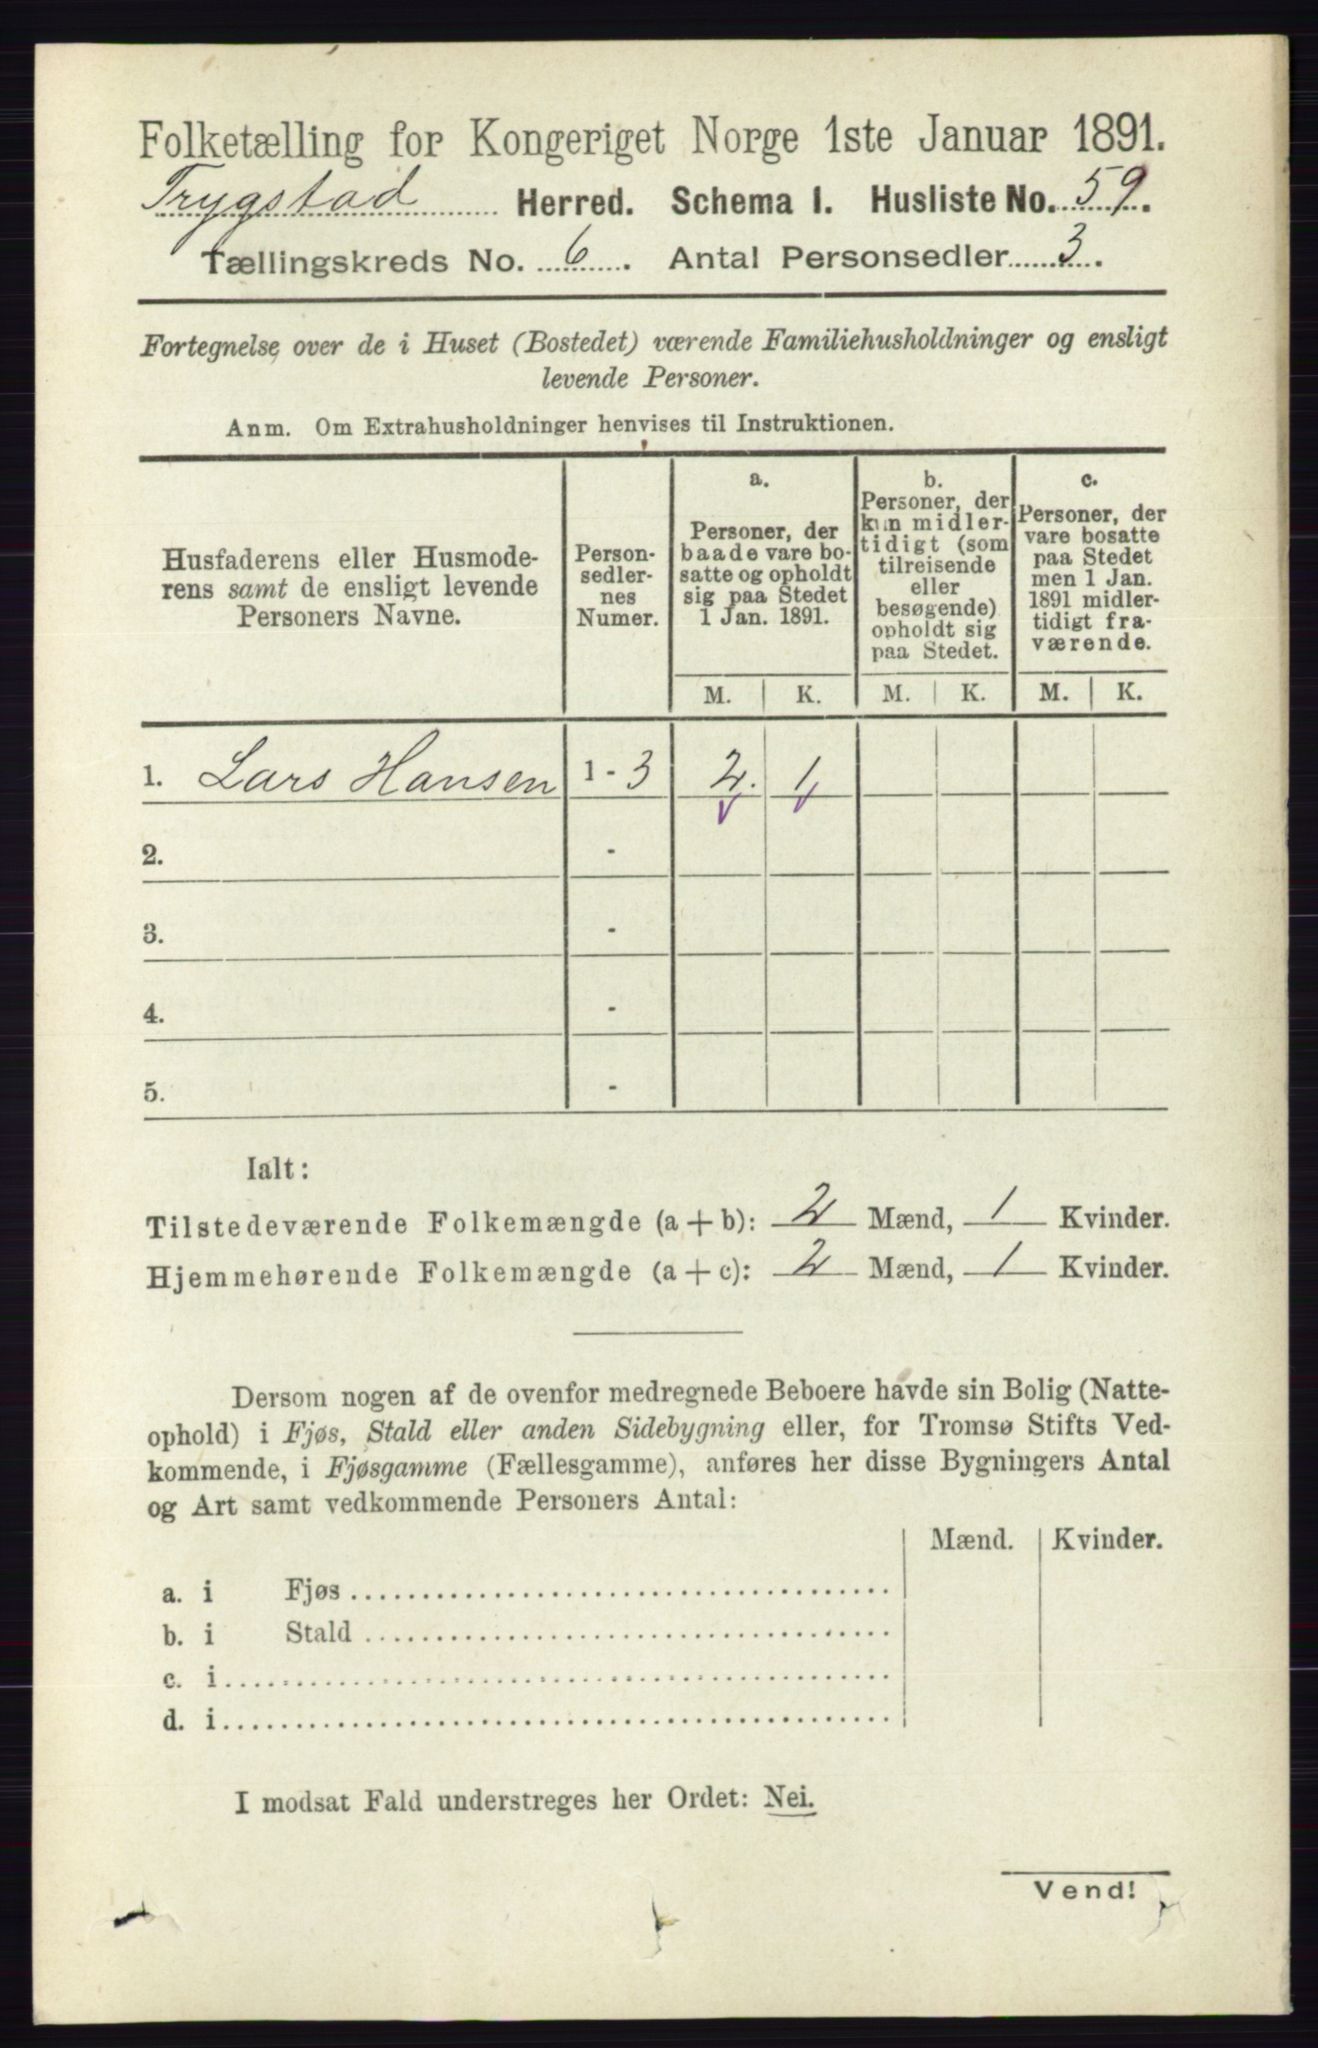 Folketælling for Kongeriget Norge 1ste Januar 1891.
Trygstad Herred. Schema I. Husliste No. 59.
Tællingskreds No. 6. Antal Personsedler 3.
Fortegnelse over de i Huset (Bostedet) værende Familiehusholdninger og ensligt
levende Personer.
Anm. Om Extrahusholdninger henvises til Instruktionen.
Husfaderens eller Husmode-
rens samt de ensligt levende
Personers Navne.
Person-
sedler-
nes
Numer.
a.
Personer, der
baade vare bo-
satte og opholdt
sig paa Stedet
1 Jan. 1891.
b.
Personer, der
kun midler-
tidigt (som
tilreisende
eller
besøgende)
opholdt sig
paa Stedet.
c.
Personer, der
vare bosatte
paa Stedet
men 1 Jan.
1891 midler-
tidigt fra-
værende.
M. K. M. K. M. K.
1. Lars Hansen 1 - 3 2. 1
2. -
3. -
4. -
5. -
Ialt:
Tilstedeværende Folkemængde (a + b): 2 Mænd, 1 Kvinder.
Hjemmehørende Folkemængde (a + c): 2 Mænd, 1 Kvinder.
Dersom nogen af de ovenfor medregnede Beboere havde sin Bolig (Natte-
ophold) i Fjøs, Stald eller anden Sidebygning eller, for Tromsø Stifts Ved-
kommende, i Fjøsgamme (Fællesgamme), anføres her disse Bygningers Antal
og Art samt vedkommende Personers Antal:
Mænd. Kvinder.
a. i Fjøs
b. i Stald
c. i
d. i
I modsat Fald understreges her Ordet: Nei.
Vend!